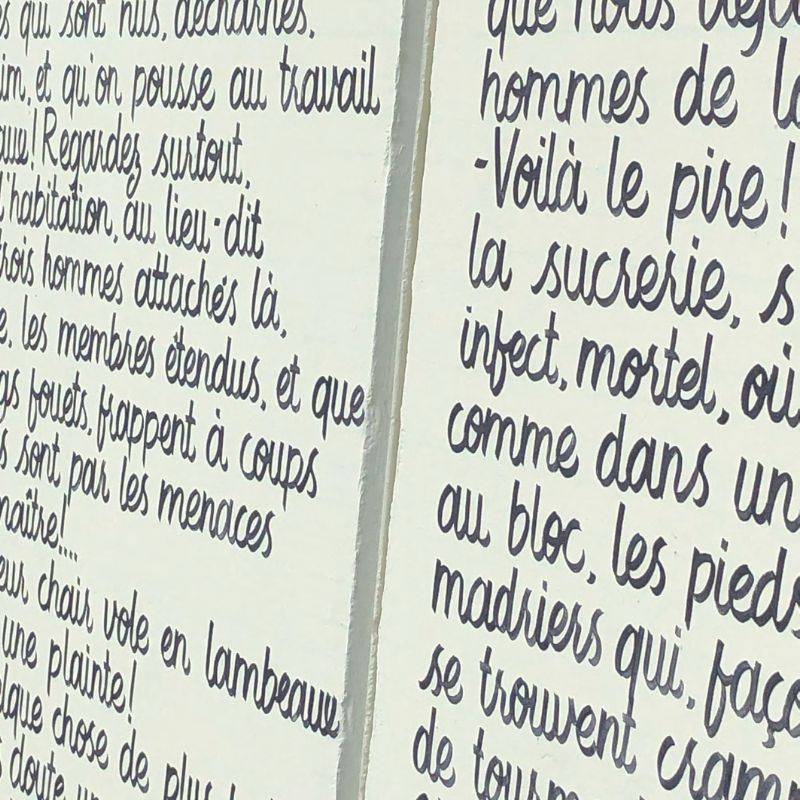 qui sont nus, décharnés.
et qu'on pousse au travail
Regardez surtout,
l'habitation, au lieu-dit
trois hommes attachés là,
les membres étendus, et que
fouets, frappent à coups
sont par les menaces
maître!...
chair vole en lambeaux
une plainte!
chose de plus
doute
que nous
hommes de
-Voilà le pire!
la sucrerie, s
infect, mortel, où
comme dans un
au bloc, les pieds
madriers qui, faço
se trouvent cramp
de